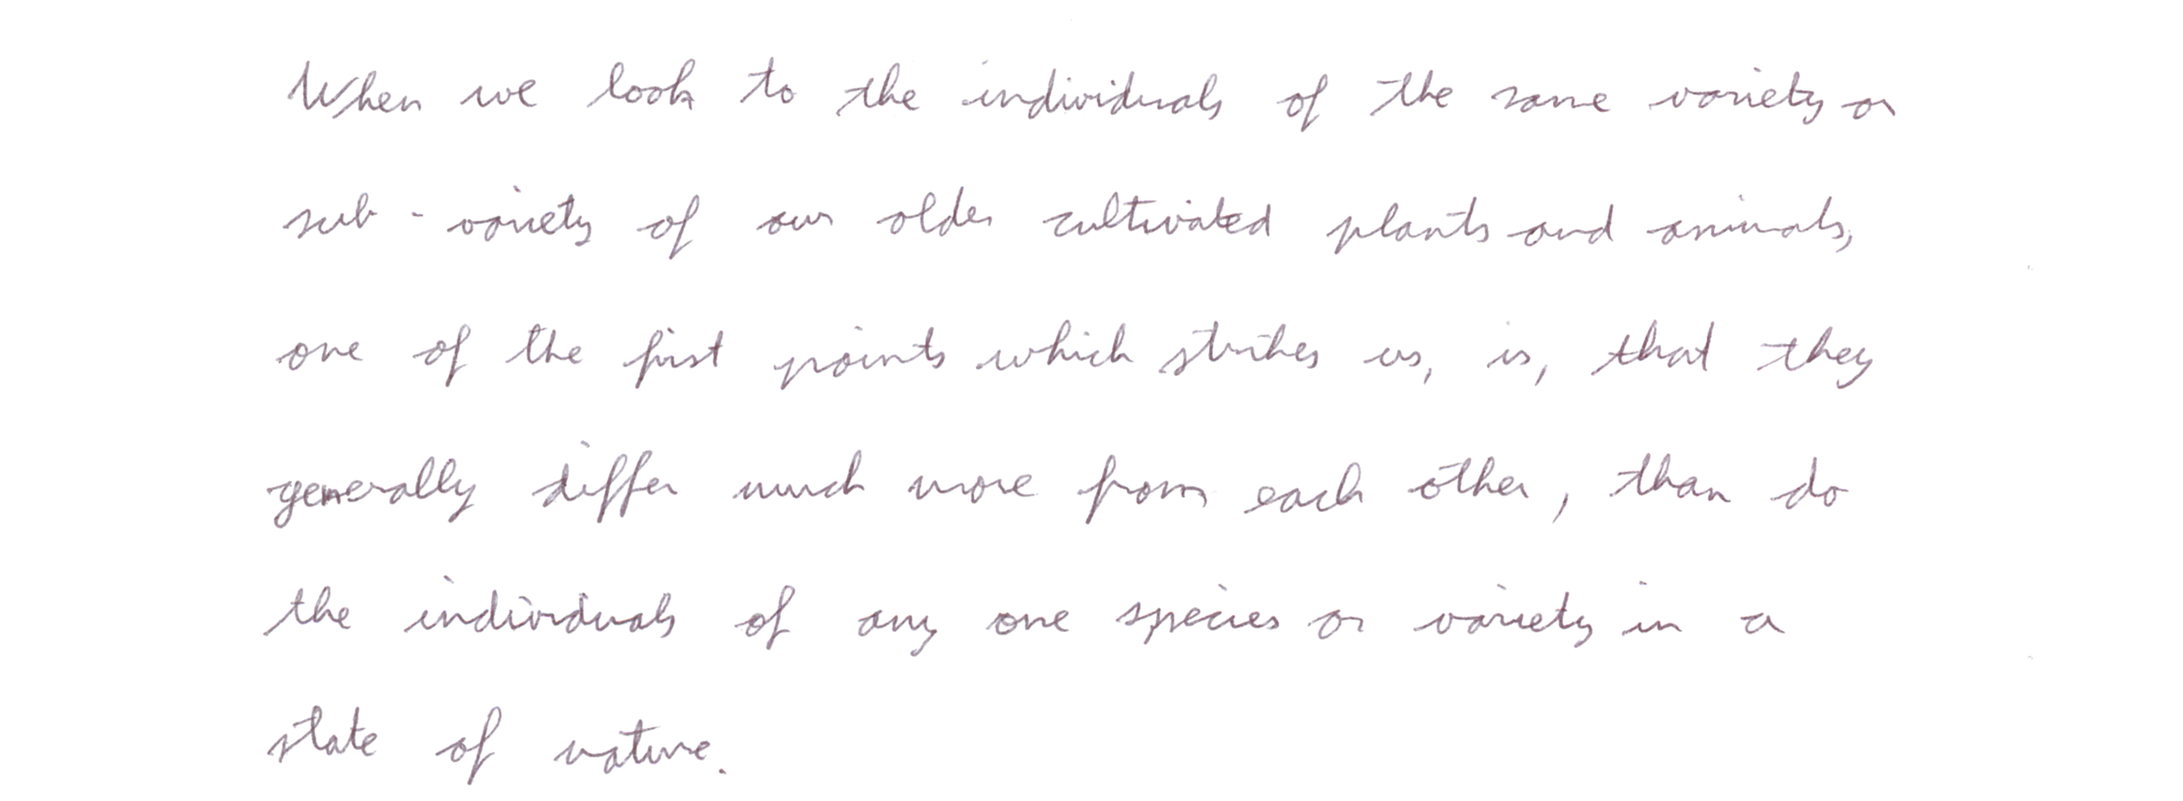 When we look to the individuals of the same variety or
sub-variety of our older cultivated plants and animals,
one of the first points which strikes us, is, that they
generally differ much more from each other, than do
the individuals of any one species or variety in a
state of nature.